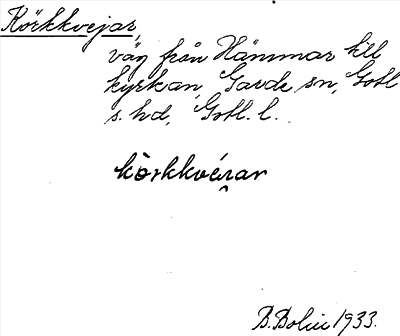 Körkkvejar,
väg från Hämmar till
kyrkan, Garde sn, Gotl
s. hd, Gotl. l.
kò̱rkkvé̯rar
B. Bolin 1933.